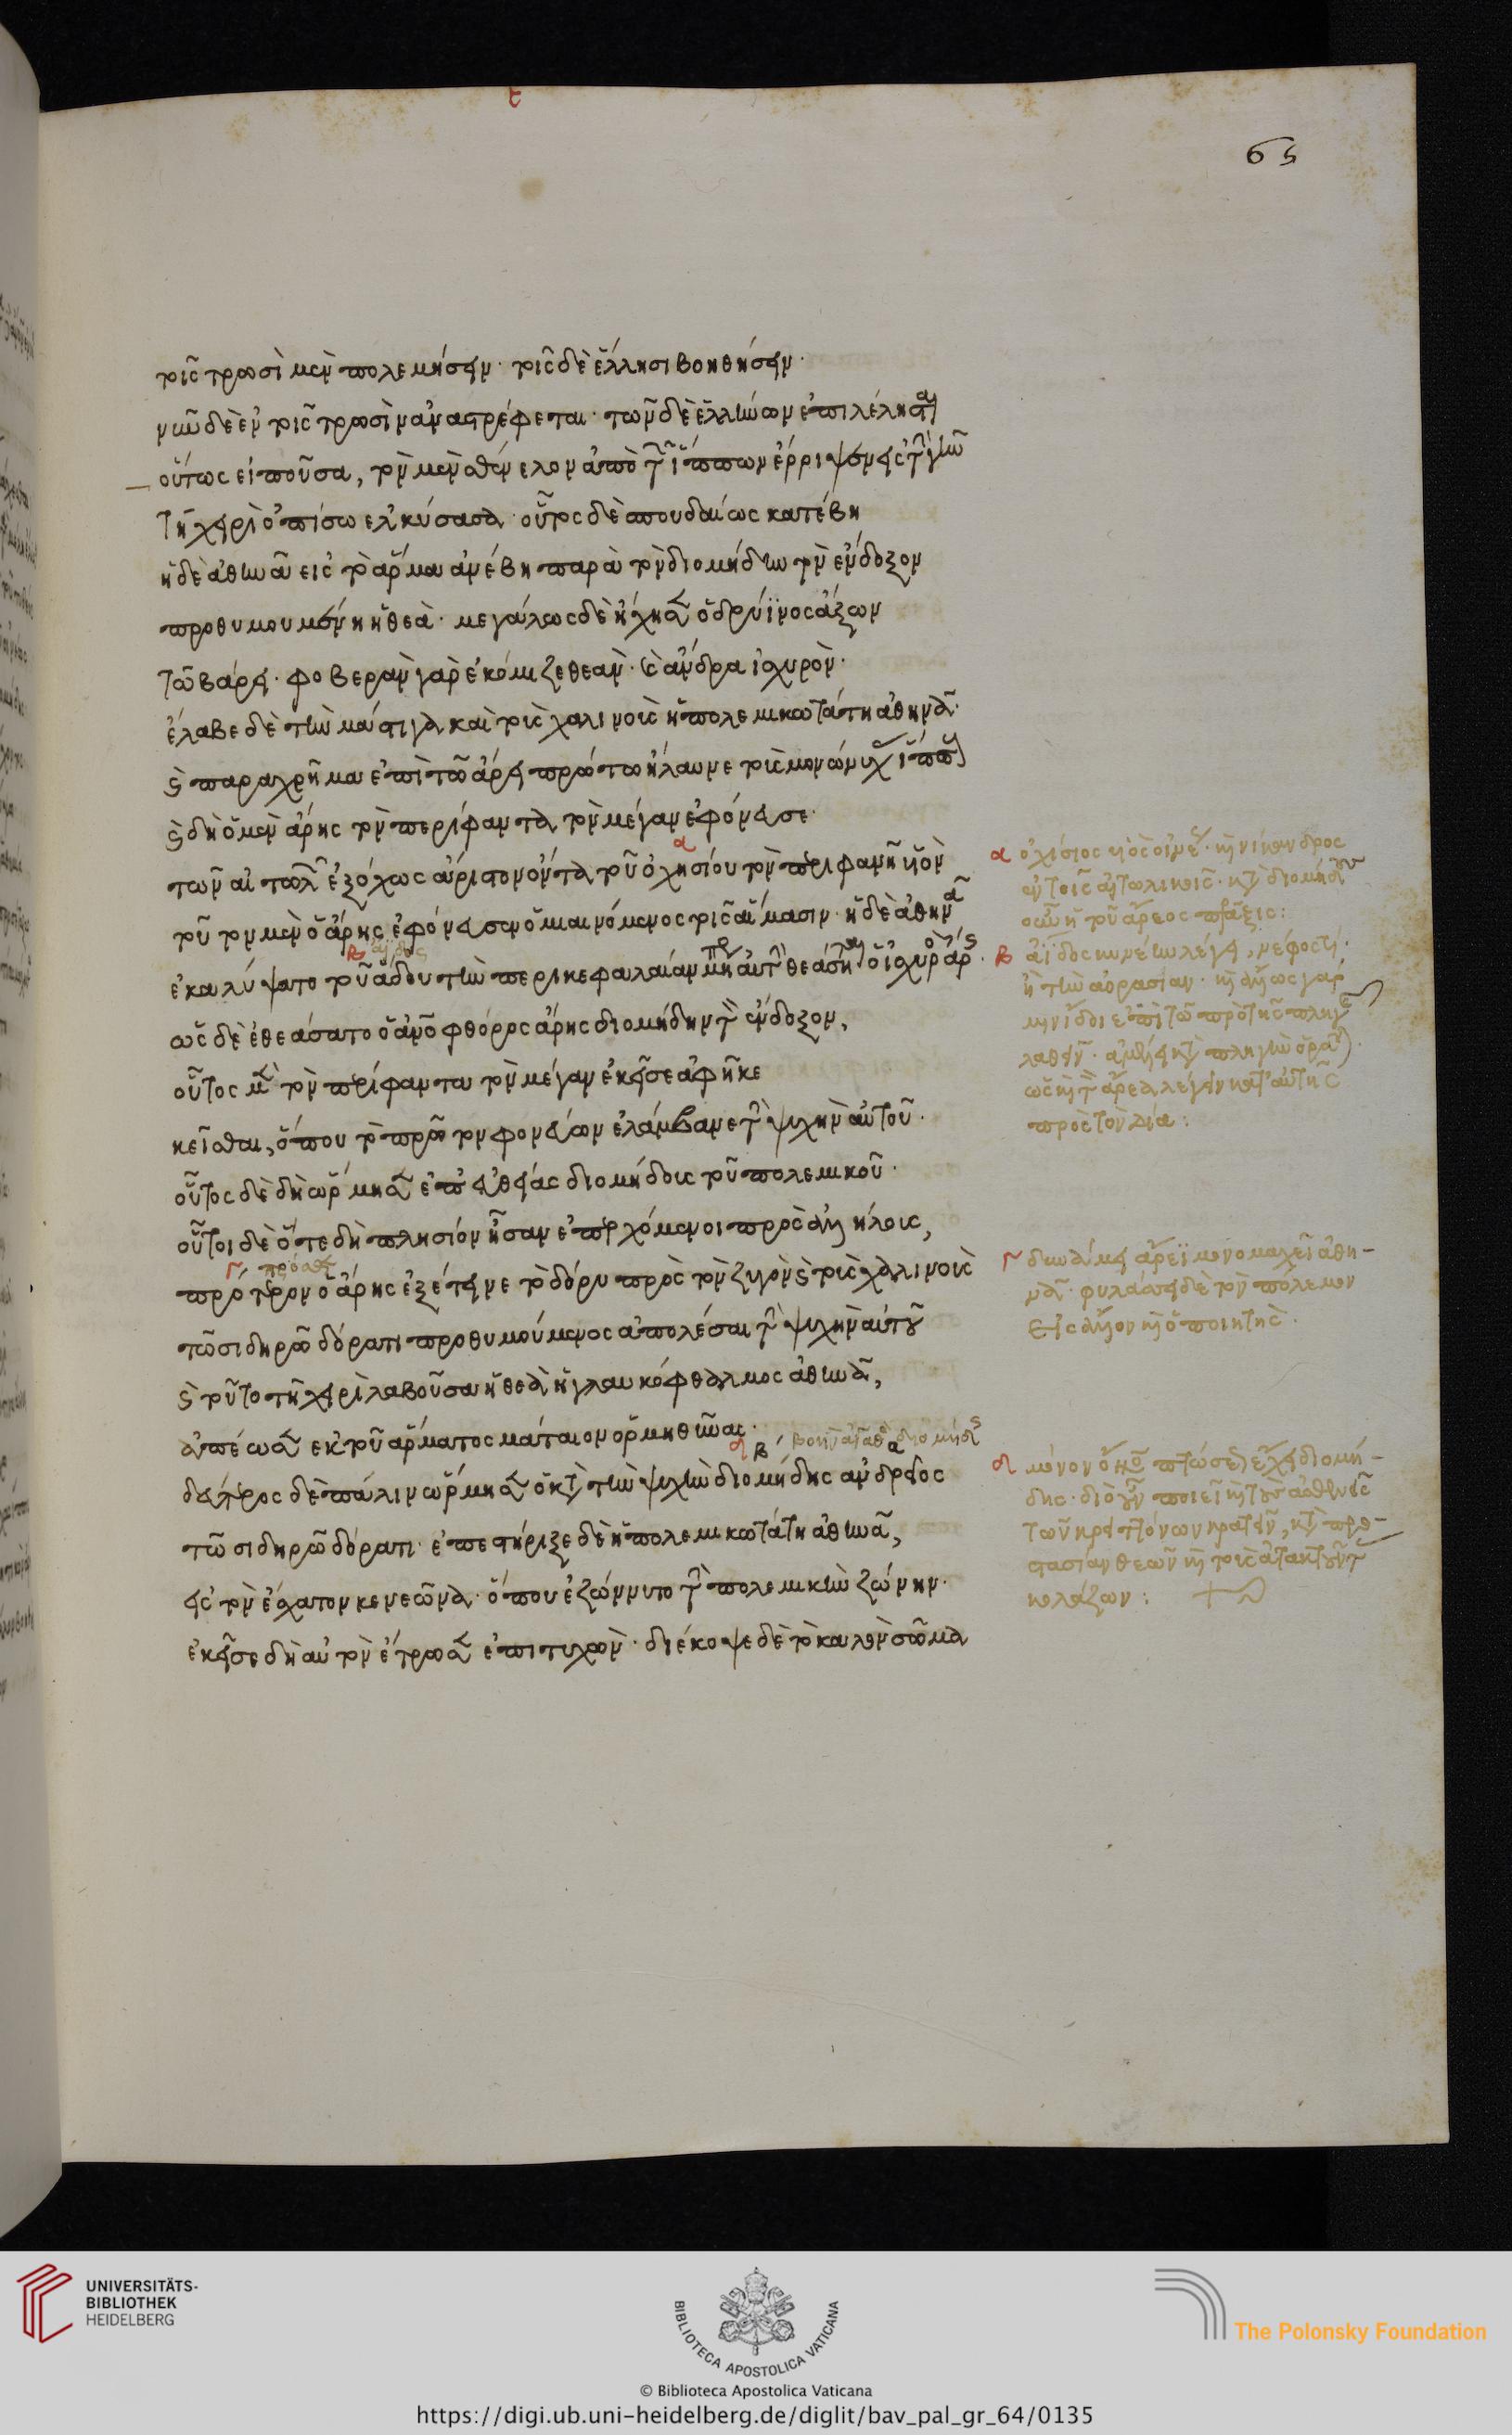 65
τοῖς τρωσὶ μὲν πολεμήσειν· τοῖς δὲ ἕλλησι βοηθήσειν·
νῦν δὲ ἐν τοῖς τρωσὶν ἀναστρέφεται· τῶν δὲ ἑλλήνων ἐπιλέλησται
οὕτως εἰποῦσα, τὸν μὲν σθένελον ἀπὸ τῶν ἵππων ἔρριψεν εἰς τὴν γῆν
τῇ χειρὶ ὀπίσω ἑλκύσασα· οὗτος δὲ σπουδαίως κατέβη
ἡ δὲ ἀθηνᾶ εἰς τὸ ἅρμα ἀνέβη παρὰ τὸν διομήδην τὸν ἔνδοξον
προθυμουμένη ἡ θεὰ· μεγάλως δὲ ἤχησεν ὁ δρύϊνος ἄξων
τῷ βάρει· φοβερὰν γὰρ ἐκόμιζε θεὰν· καὶ ἄνδρα ἰσχυρὸν·
ἔλαβε δὲ τὴν μάστιγα καὶ τοὺς χαλινοὺς ἡ πολεμικωτάτη ἀθηνᾶ·
καὶ παραχρῆμα ἐπὶ τῷ ἄρει πρώτῳ ἤλαυνε τοὺς μονώνυχας ἵππους
καὶ δὴ ὁ μὲν ἄρης τὸν περίφαντα τὸν μέγαν ἐφόνευσε·
τῶν αἰτωλῶν ἐξόχως ἄριστον ὄντα τοῦ ὀχησίου τὸν περιφανῆ υἱὸν
τοῦτον μὲν ὁ ἄρης ἐφόνευσεν ὁ μιαινόμενος τοῖς αἵμασιν· ἡ δὲ ἀθηνᾶ
ἐκαλύψατο τοῦ ᾅδου τὴν περικεφαλαίαν μήπως αὐτὴν θεάσηται ὁ ἰσχυρὸς ἄρης·
ὡς δὲ ἐθεάσατο ὁ ἀνθρωποφθόρος ἄρης διομήδην τὸν ἔνδοξον,
οὗτος μὲν τὸν περίφαντα τὸν μέγαν ἐκεῖσε ἀφῆκε
κεῖσθαι, ὅπου τὸ πρῶτον φονεύων ἐλάμβανε τὴν ψυχὴν αὐτοῦ·
οὗτος δὲ δὴ ὥρμησεν ἐπ' εὐθείας διομήδους τοῦ πολεμικοῦ·
οὗτοι δὲ ὅτε δὴ πλησίον ἦσαν ἐπερχόμενοι πρὸς ἀλλήλους,
πρότερον ὁ ἄρης ἐξέτεινε τὸ δόρυ πρὸς τὸν ζυγὸν καὶ τοὺς χαλινοὺς
τῷ σιδηρῷ δόρατι προθυμούμενος ἀπολέσαι τὴν ψυχὴν αὐτοῦ
καὶ τοῦτο τῇ χειρὶ λαβοῦσα ἡ θεὰ ἡ γλαυκόφθαλμος ἀθηνᾶ,
ἀπέωσεν ἐκ τοῦ ἅρματος μάταιον ὁρμηθῆναι·
δεύτερος δὲ πάλιν ὥρμησεν ὁ κατὰ τὴν ψυχὴν διομήδης ἀνδρεῖος
τῷ σιδηρῷ δόρατι· ἐπεστήριξε δὲ ἡ πολεμικωτάτη ἀθηνᾶ,
εἰς τὸν ἔσχατον κενεῶνα· ὅπου ἐζώννυτο τὴν πολεμικὴν ζώνην·
ἐκεῖσε δὴ αὐτὸν ἔτρωσεν ἐπιτυχὼν· διέκοψε δὲ τὸ καλὸν σῶμα
α ὀχήσιος υἱὸς οἰνέως· καὶ νίκανδρος
ἐν τοῖς αἰτωλικοῖς· κατὰ διομήδην
οὖν ἡ τοῦ ἄρεος πρᾶξις:
β ἄϊδος κυνέην λέγει, νέφος τι·
ἢ τὴν ἀορασίαν·
πρὸς τὸν δία:
γ δυνάμει ἄρεϊ μονομαχεῖ ἀθη-
νᾶ· φυλάττει δὲ τὸν πόλεμον
ὁ ποιητής·
δ μόνον διομή-
δης· διὸ ποιεῖ
τῶν κρειττόνων κρατεῖν,
θεῶν καὶ τοὺς ἀτακτοῦντας
κολάζων:
UNIVERSITÄTS-
BIBLIOTHEK
HEIDELBERG
BIBLIOTECA APOSTOLICA VATICANA
The Polonsky Foundation
© Biblioteca Apostolica Vaticana
https://digi.ub.uni-heidelberg.de/diglit/bav_pal_gr_64/0135